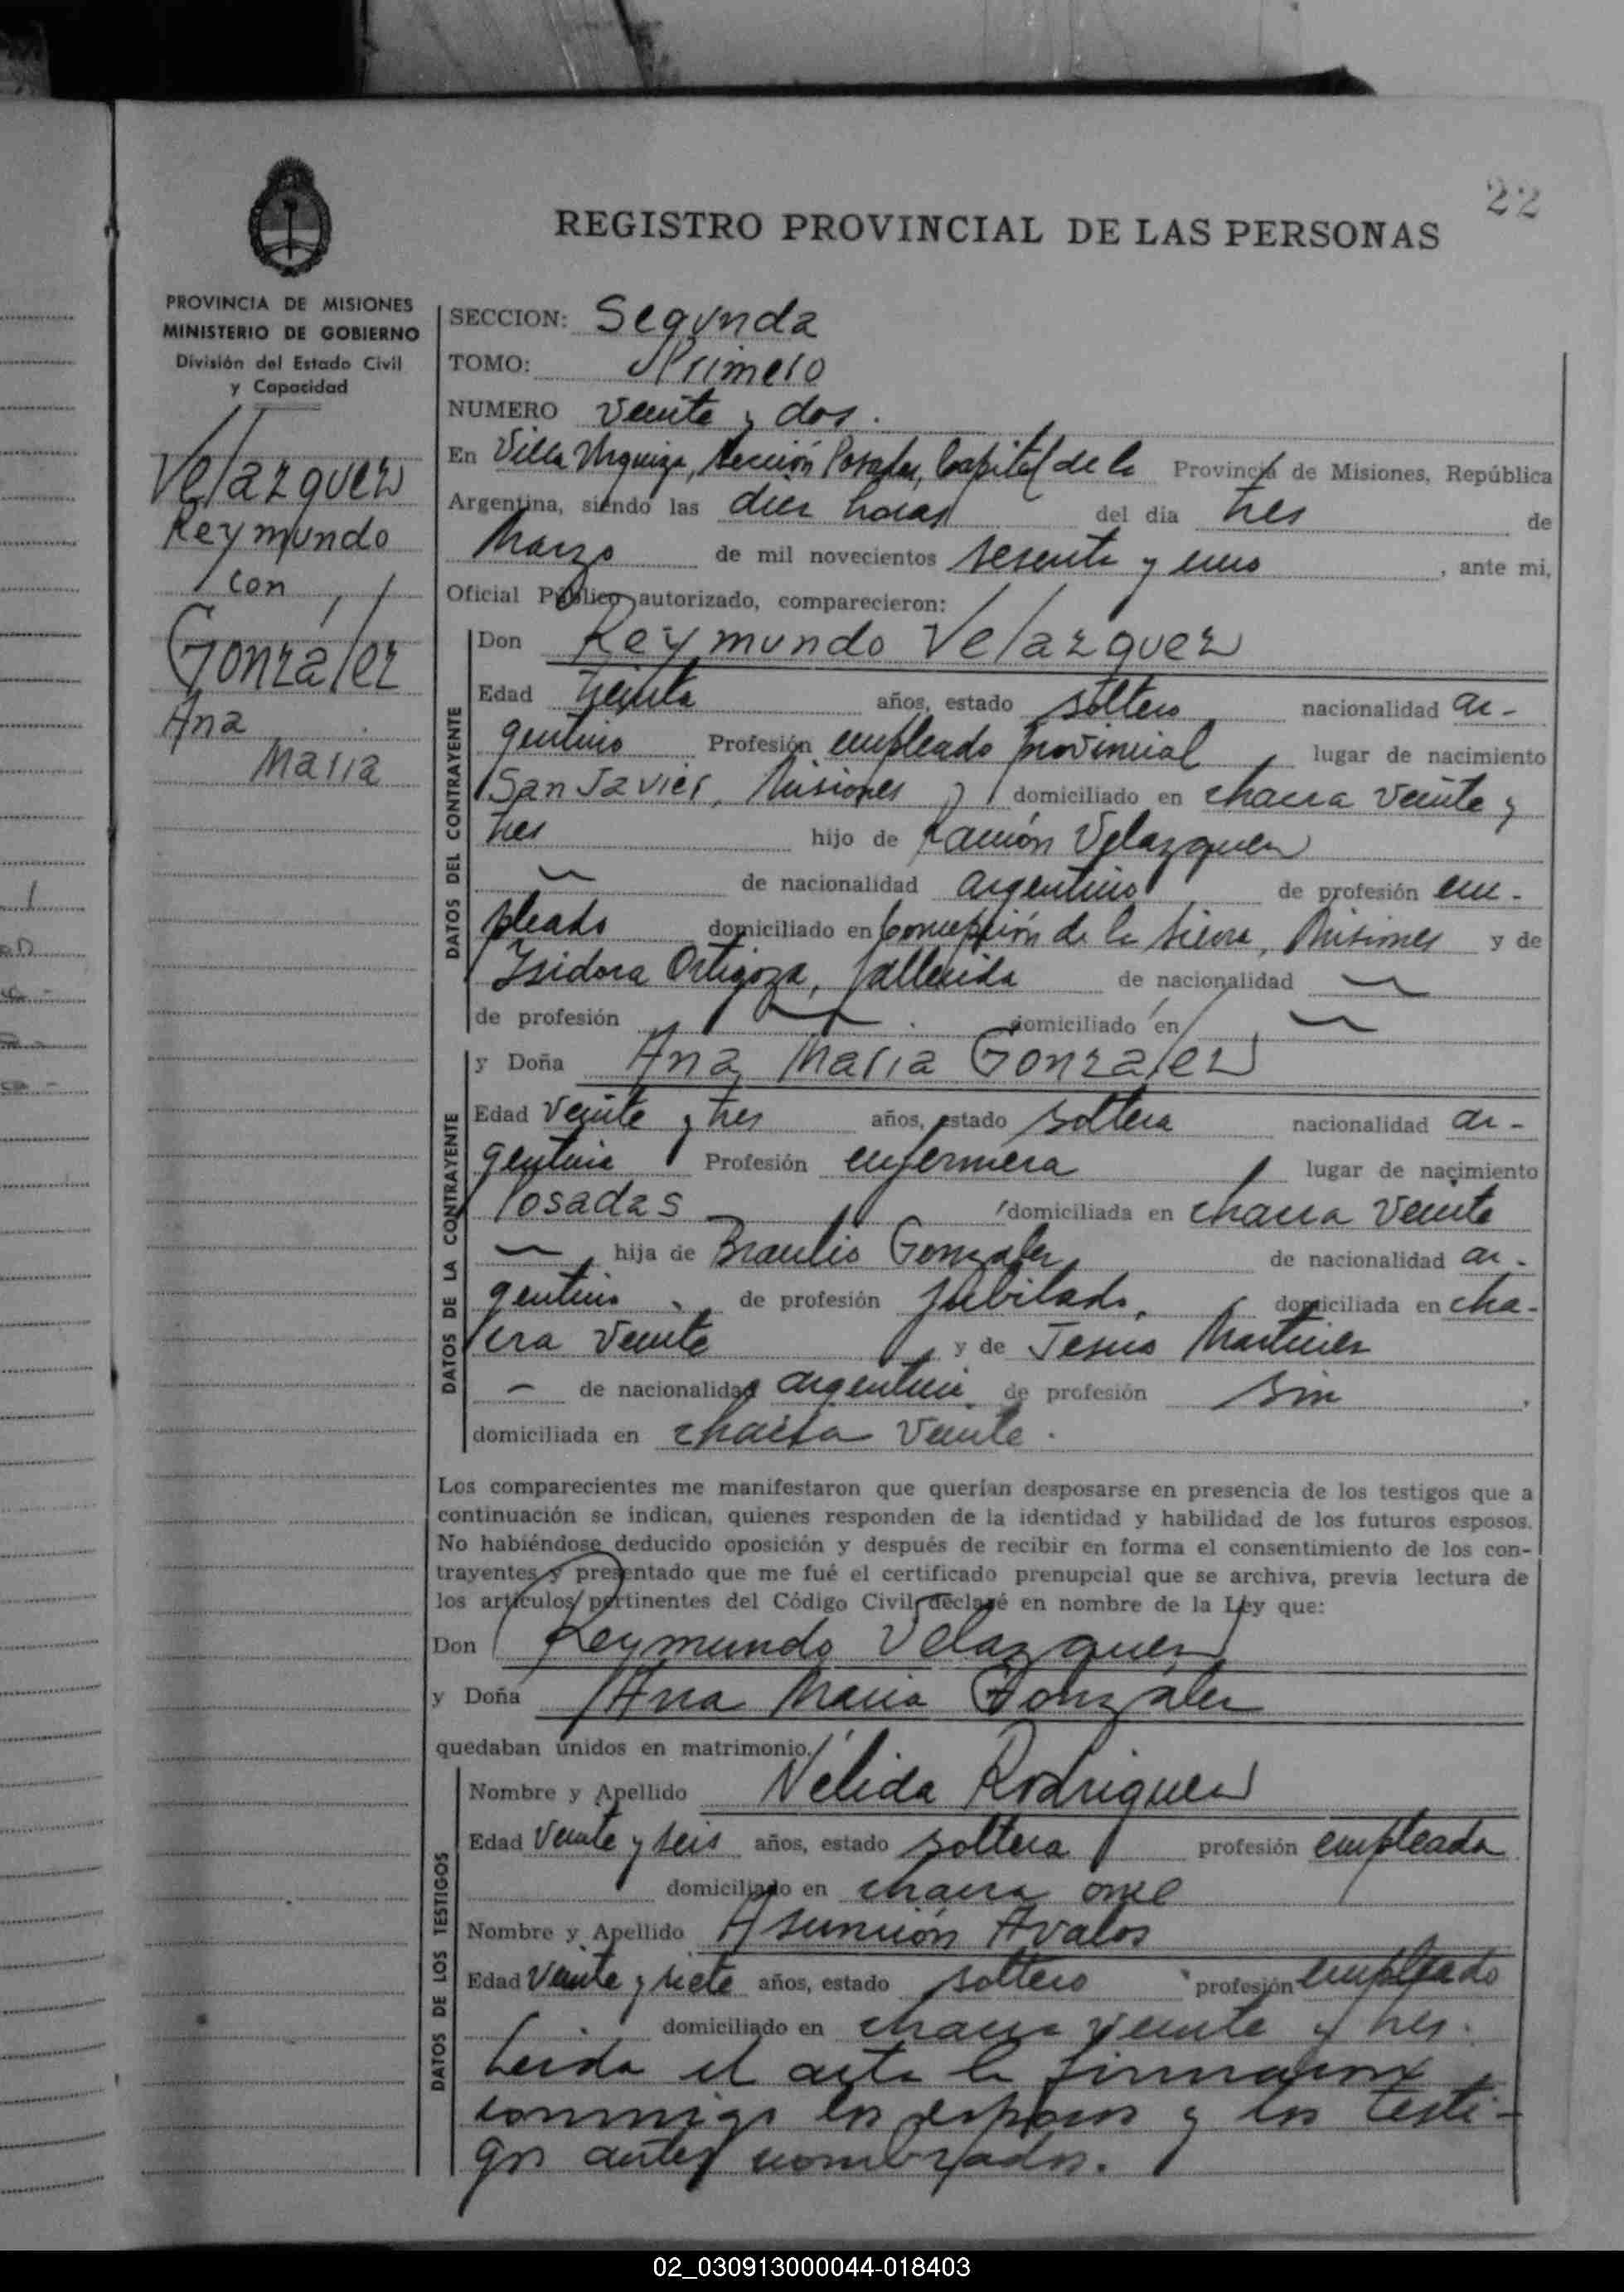 22
REGISTRO PROVINCIAL DE LAS PERSONAS
PROVINCIA DE MISIONES
MINISTERIO DE GOBIERNO
División del Estado Civil
y Capacidad
Velazquez
Reymundo
con
González
Ana
Maria
SECCION: Segunda
TOMO: Primero
NUMERO veinte y dos.
En Villa Urquiza, Sección Posadas, Capital de la Provincia de Misiones, República
Argentina, siendo las diez horas del día tres de
Marzo de mil novecientos sesenta y uno, ante mi,
Oficial Público autorizado, comparecieron:
DATOS DEL CONTRAYENTE
Don Reymundo Velazquez
Edad treinta años, estado soltero nacionalidad ar-
gentino Profesión empleado provincial, lugar de nacimiento
San Javier, Misiones, domiciliado en chacra veinte y
tres hijo de Ramón Velazquez
de nacionalidad argentino de profesión em-
pleado domiciliado en Concepción de la Sierra, Misiones y de
Isidora Ortigoza, fallecida de nacionalidad
de profesión domiciliado en
DATOS DE LA CONTRAYENTE
y Doña Ana Maria Gonzalez
Edad veinte y tres años, estado soltera nacionalidad ar-
gentina Profesión enfermera, lugar de nacimiento
Posadas domiciliada en chacra veinte
hija de Braulio Gonzalez de nacionalidad ar-
gentino, de profesión jubilado, domiciliada en cha-
cra veinte y de Jesus Martinez
de nacionalidad argentina de profesión sin,
domiciliada en chacra veinte.
Los comparecientes me manifestaron que querían desposarse en presencia de los testigos que a
continuación se indican, quienes responden de la identidad y habilidad de los futuros esposos.
No habiéndose deducido oposición y después de recibir en forma el consentimiento de los con-
trayentes y presentado que me fué el certificado prenupcial que se archiva, previa lectura de
los artículos pertinentes del Código Civil, declaré en nombre de la Ley que:
Don Reymundo Velazquez
y Doña Ana Maria Gonzalez
quedaban unidos en matrimonio.
DATOS DE LOS TESTIGOS
Nombre y Apellido Nélida Rodriguez
Edad veinte y seis años, estado soltera profesión empleada
domiciliado en chacra once
Nombre y Apellido Asunción Avalos
Edad veinte y siete años, estado soltero profesión empleado
domiciliado en chacra veinte y tres.
Leida el acta la firmaron
conmigo los esposos y los testi-
gos antes nombrados.
02_030913000044-018403